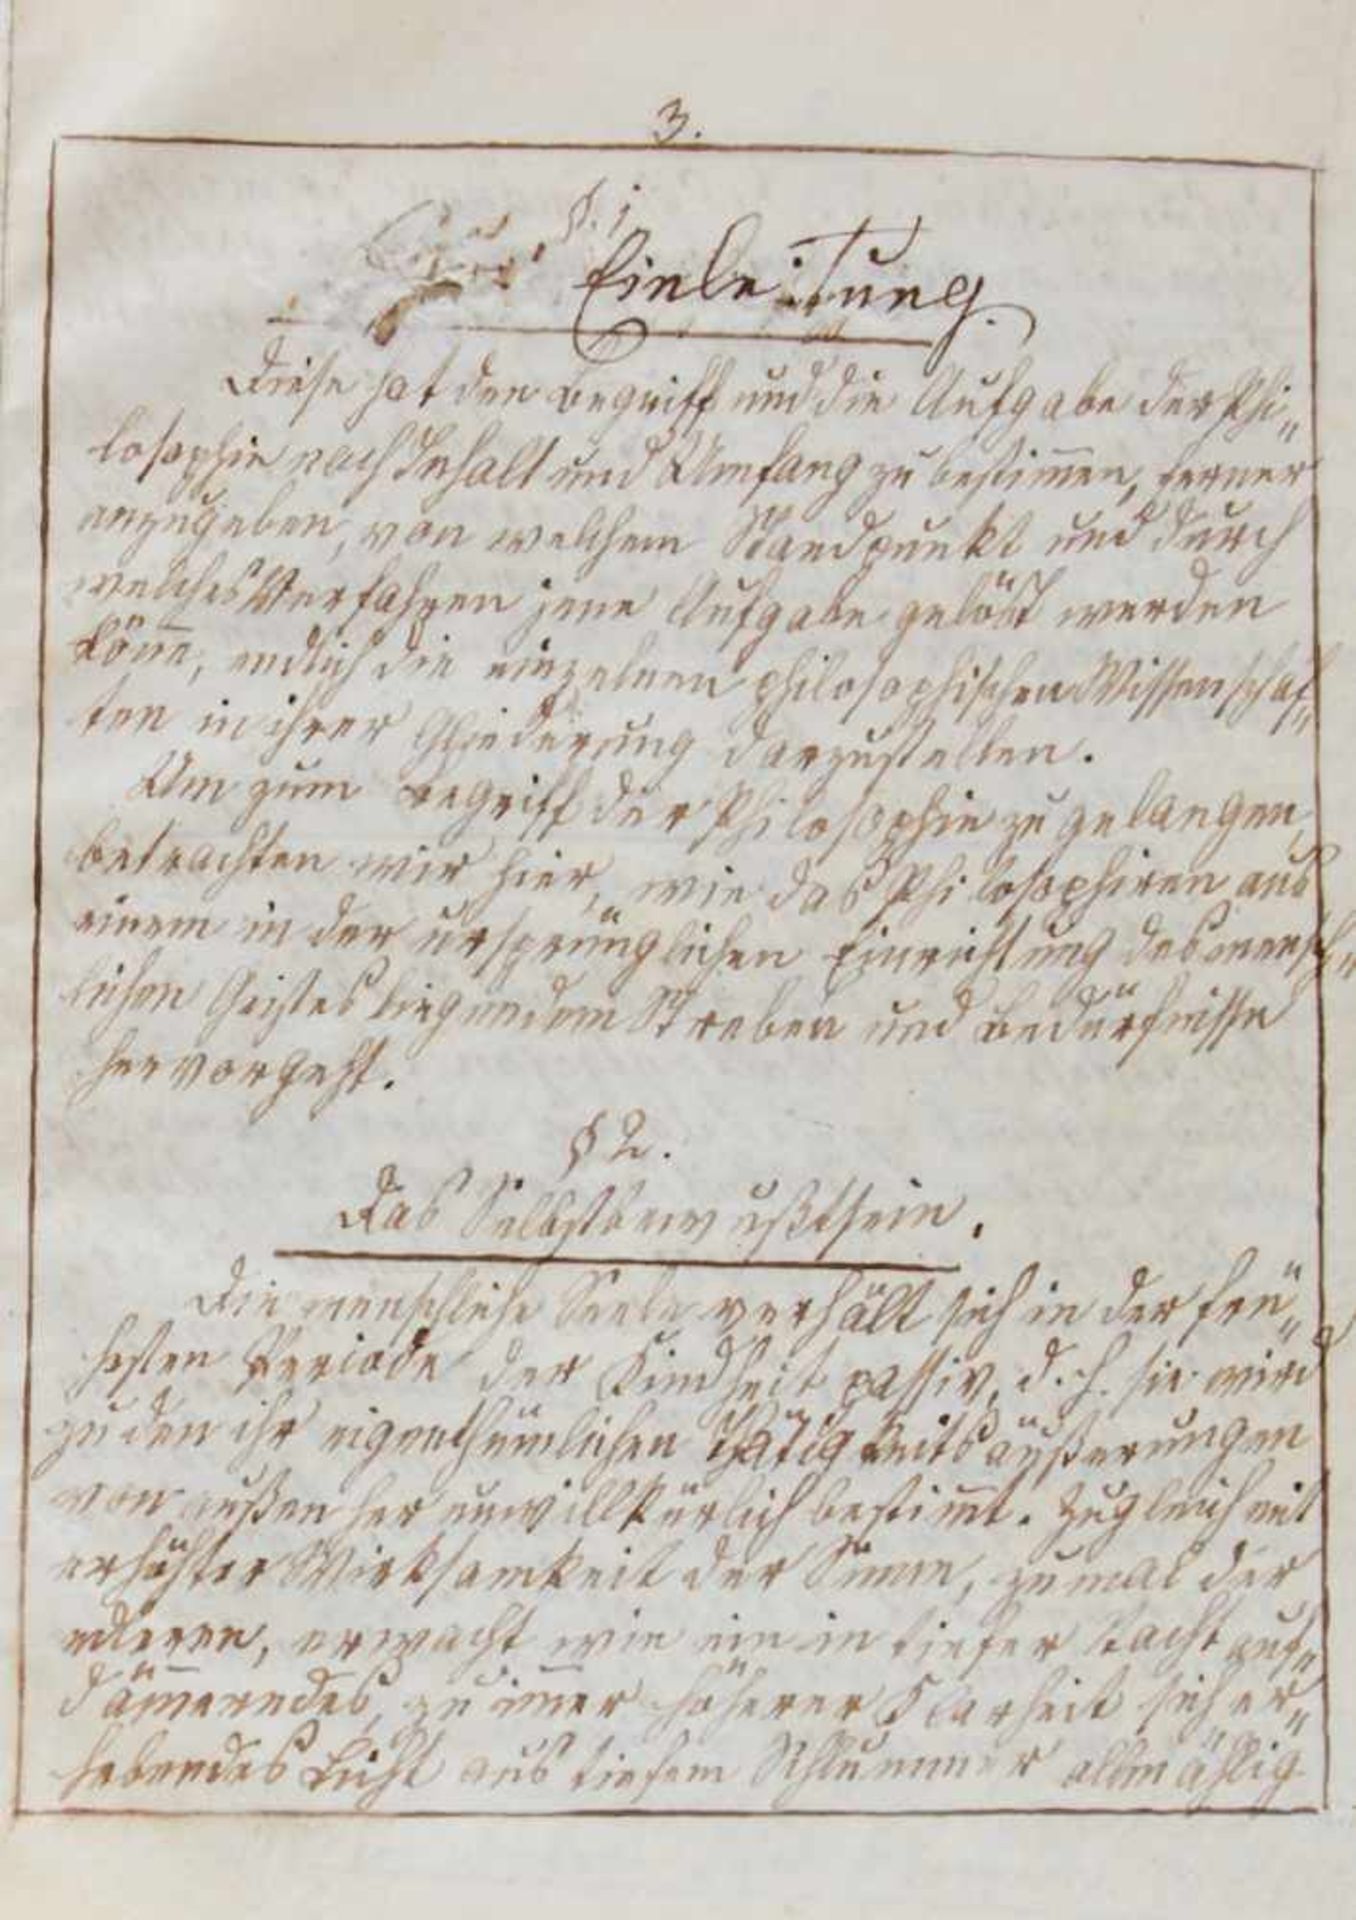 3.
§. 1
Einleitung.
Diese hat den Begriff und die Aufgabe der Phi„
losophie nach Inhalt und Umfang zu bestim̄en, ferner
anzugeben, von welchem Standpunkt und durch
welches Verfahren jene Aufgabe gelöst werden
kön̄e, endlich die einzelnen philosophischen Wissenschaf„
ten in ihrer Gliederung darzustellen.
Um zum Begriff der Philosophie zu gelangen,
betrachten wir hier, wie das Philosophiren aus
einem in der ursprünglichen Einrichtung des mensch„
lichen Geistes liegendem Streben und Bedürfnisse
hervorgeht.
§ 2.
Das Selbstbewußtsein.
Die menschliche Seele verhält sich in der frü„
hesten Periode der Kindheit passiv, d. h. sie wird
zu den ihr eigenthümlichen Thätigkeitsäußerungen
von außen her unwillkürlich bestim̄t. Zugleich mit
erhöhter Wirksamkeit der Sinne, zumal der
edleren, erwacht wie ein in tiefer Nacht auf„
däm̄erndes, zu im̄er höherer Klarheit sich er„
hebendes Licht aus tiefem Schlummer allmählig